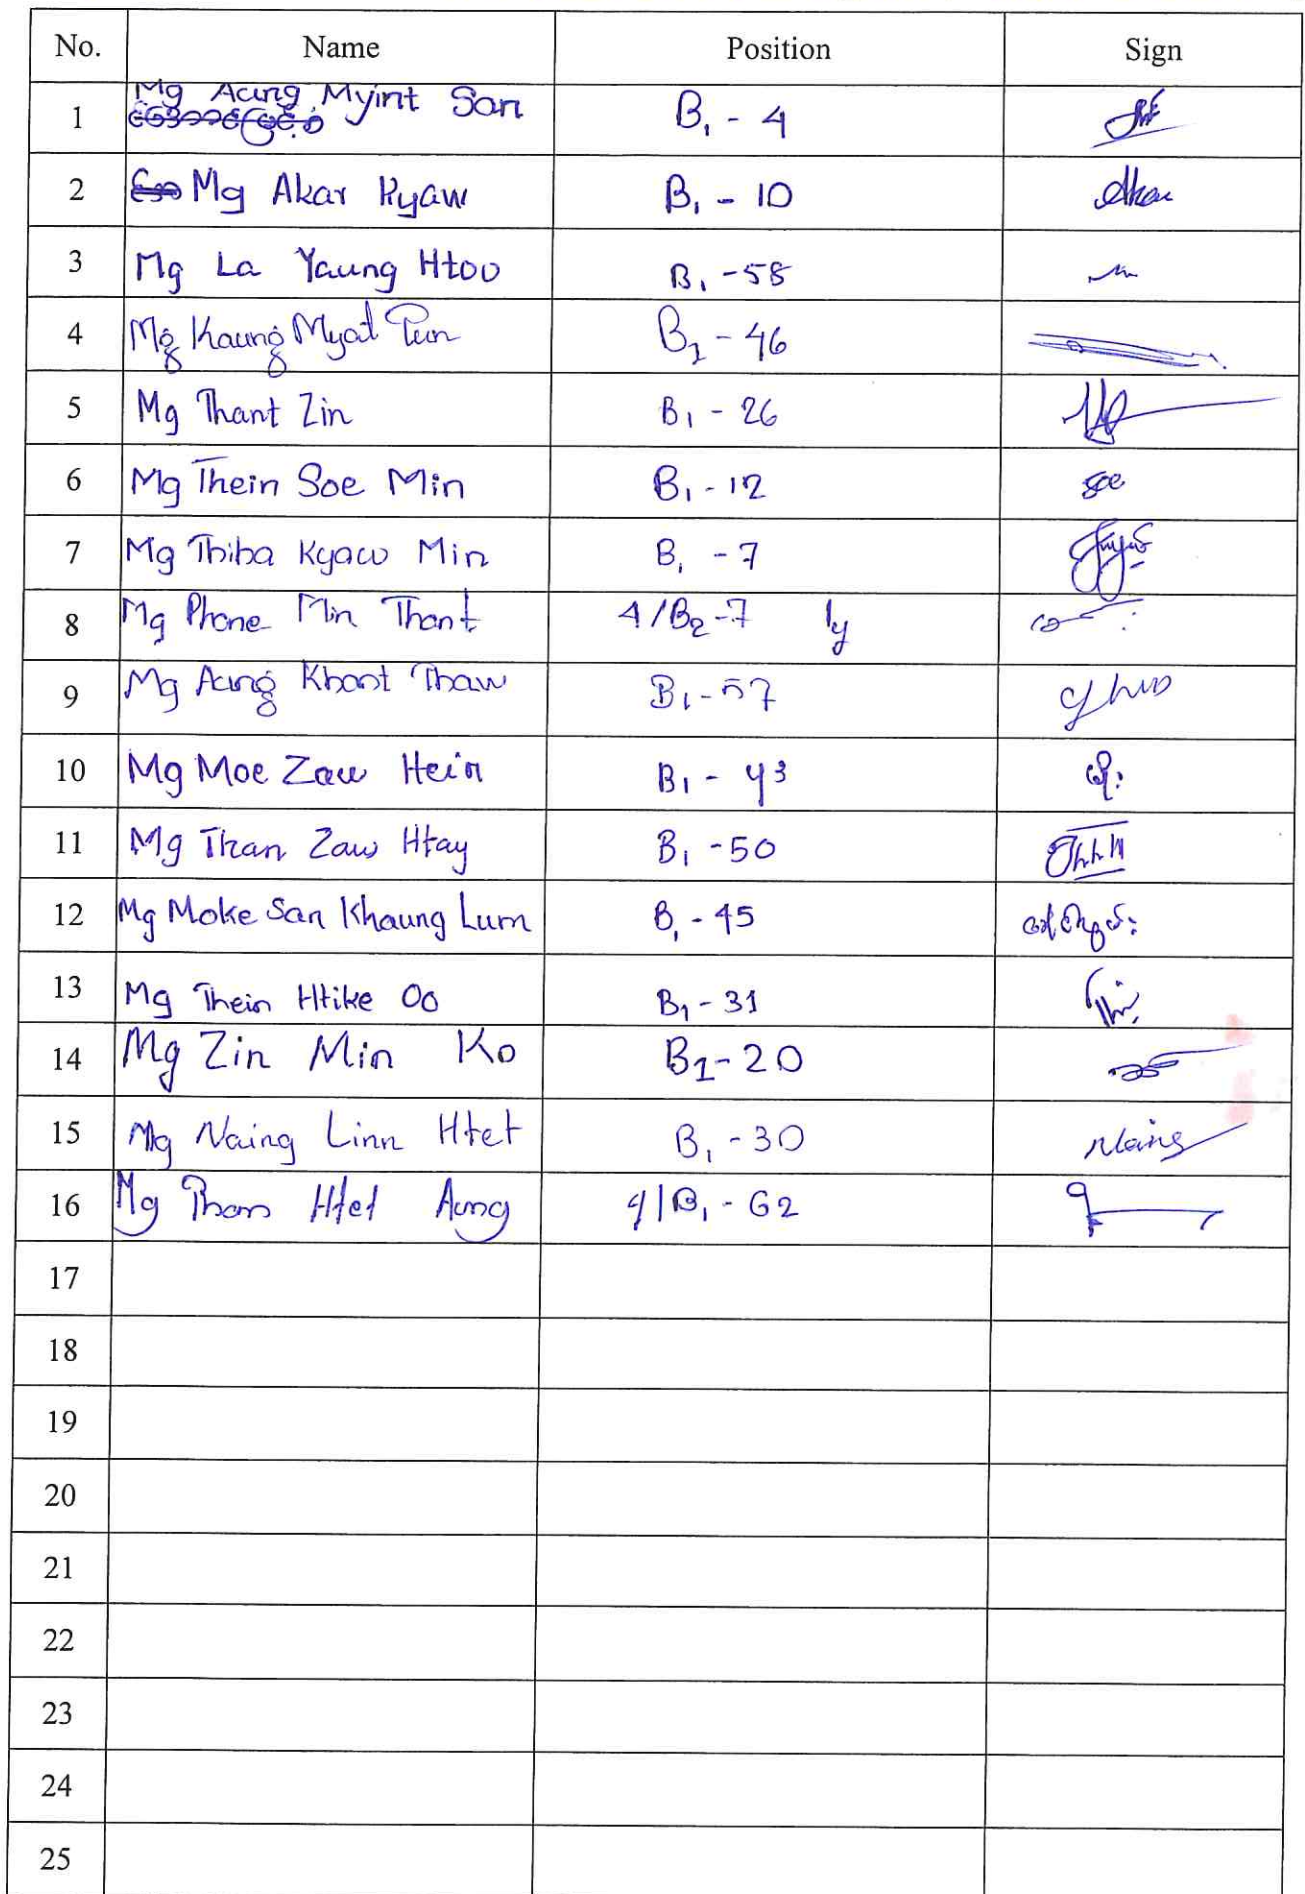 No. Name Position Sign
1 Mg Aung Myint San B1 - 4
2 Mg Akar Kyaw B1 - 10 Akar
3 Mg La Yaung Htoo B1 - 58
4 Mg Kaung Myat Tun B2 - 46
5 Mg Thant Zin B1 - 26
6 Mg Thein Soe Min B1 - 12 soe
7 Mg Thiha Kyaw Min B1 - 7
8 Mg Phone Min Thant 4/B2-7
9 Mg Aung Khant Thaw B1 - 57
10 Mg Moe Zaw Hein B1 - 43
11 Mg Than Zaw Htay B1 - 50
12 Mg Moke San Khaung Lum B1 - 45
13 Mg Thein Htike Oo B1 - 31
14 Mg Zin Min Ko B1 - 20
15 Mg Naing Linn Htet B1 - 30 Naing
16 Mg Htet Aung 4/B1 - 62
17
18
19
20
21
22
23
24
25